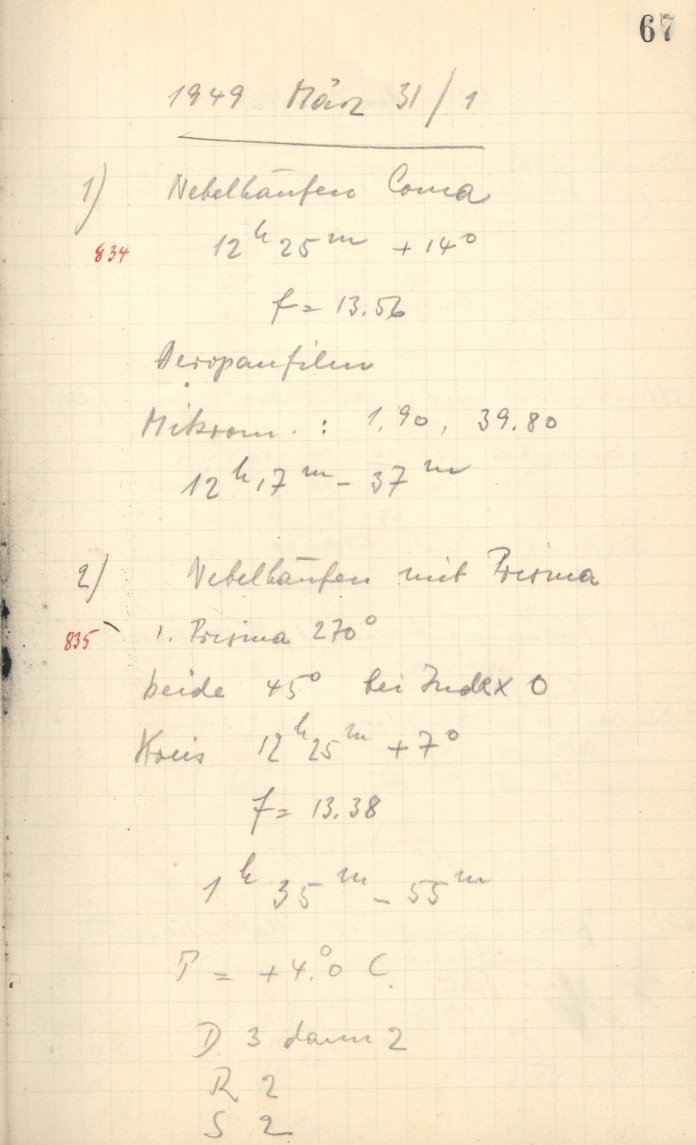 67
1949 März 31/1
1) Nebelhäufen Coma
834 12ʰ 25ᵐ +14°
f = 13.56
Aeropanfilm
Mikrom. : 1.90, 39.80
12ʰ 17ᵐ - 37ᵐ
2) Nebelhäufen mit Prisma
835 1. Prisma 270°
beide 45° bei Index 0
Kreis 12ʰ 25ᵐ +7°
f = 13.38
1ʰ 35ᵐ - 55ᵐ
T = +4.°0 C.
D 3 dann 2
R 2
S 2